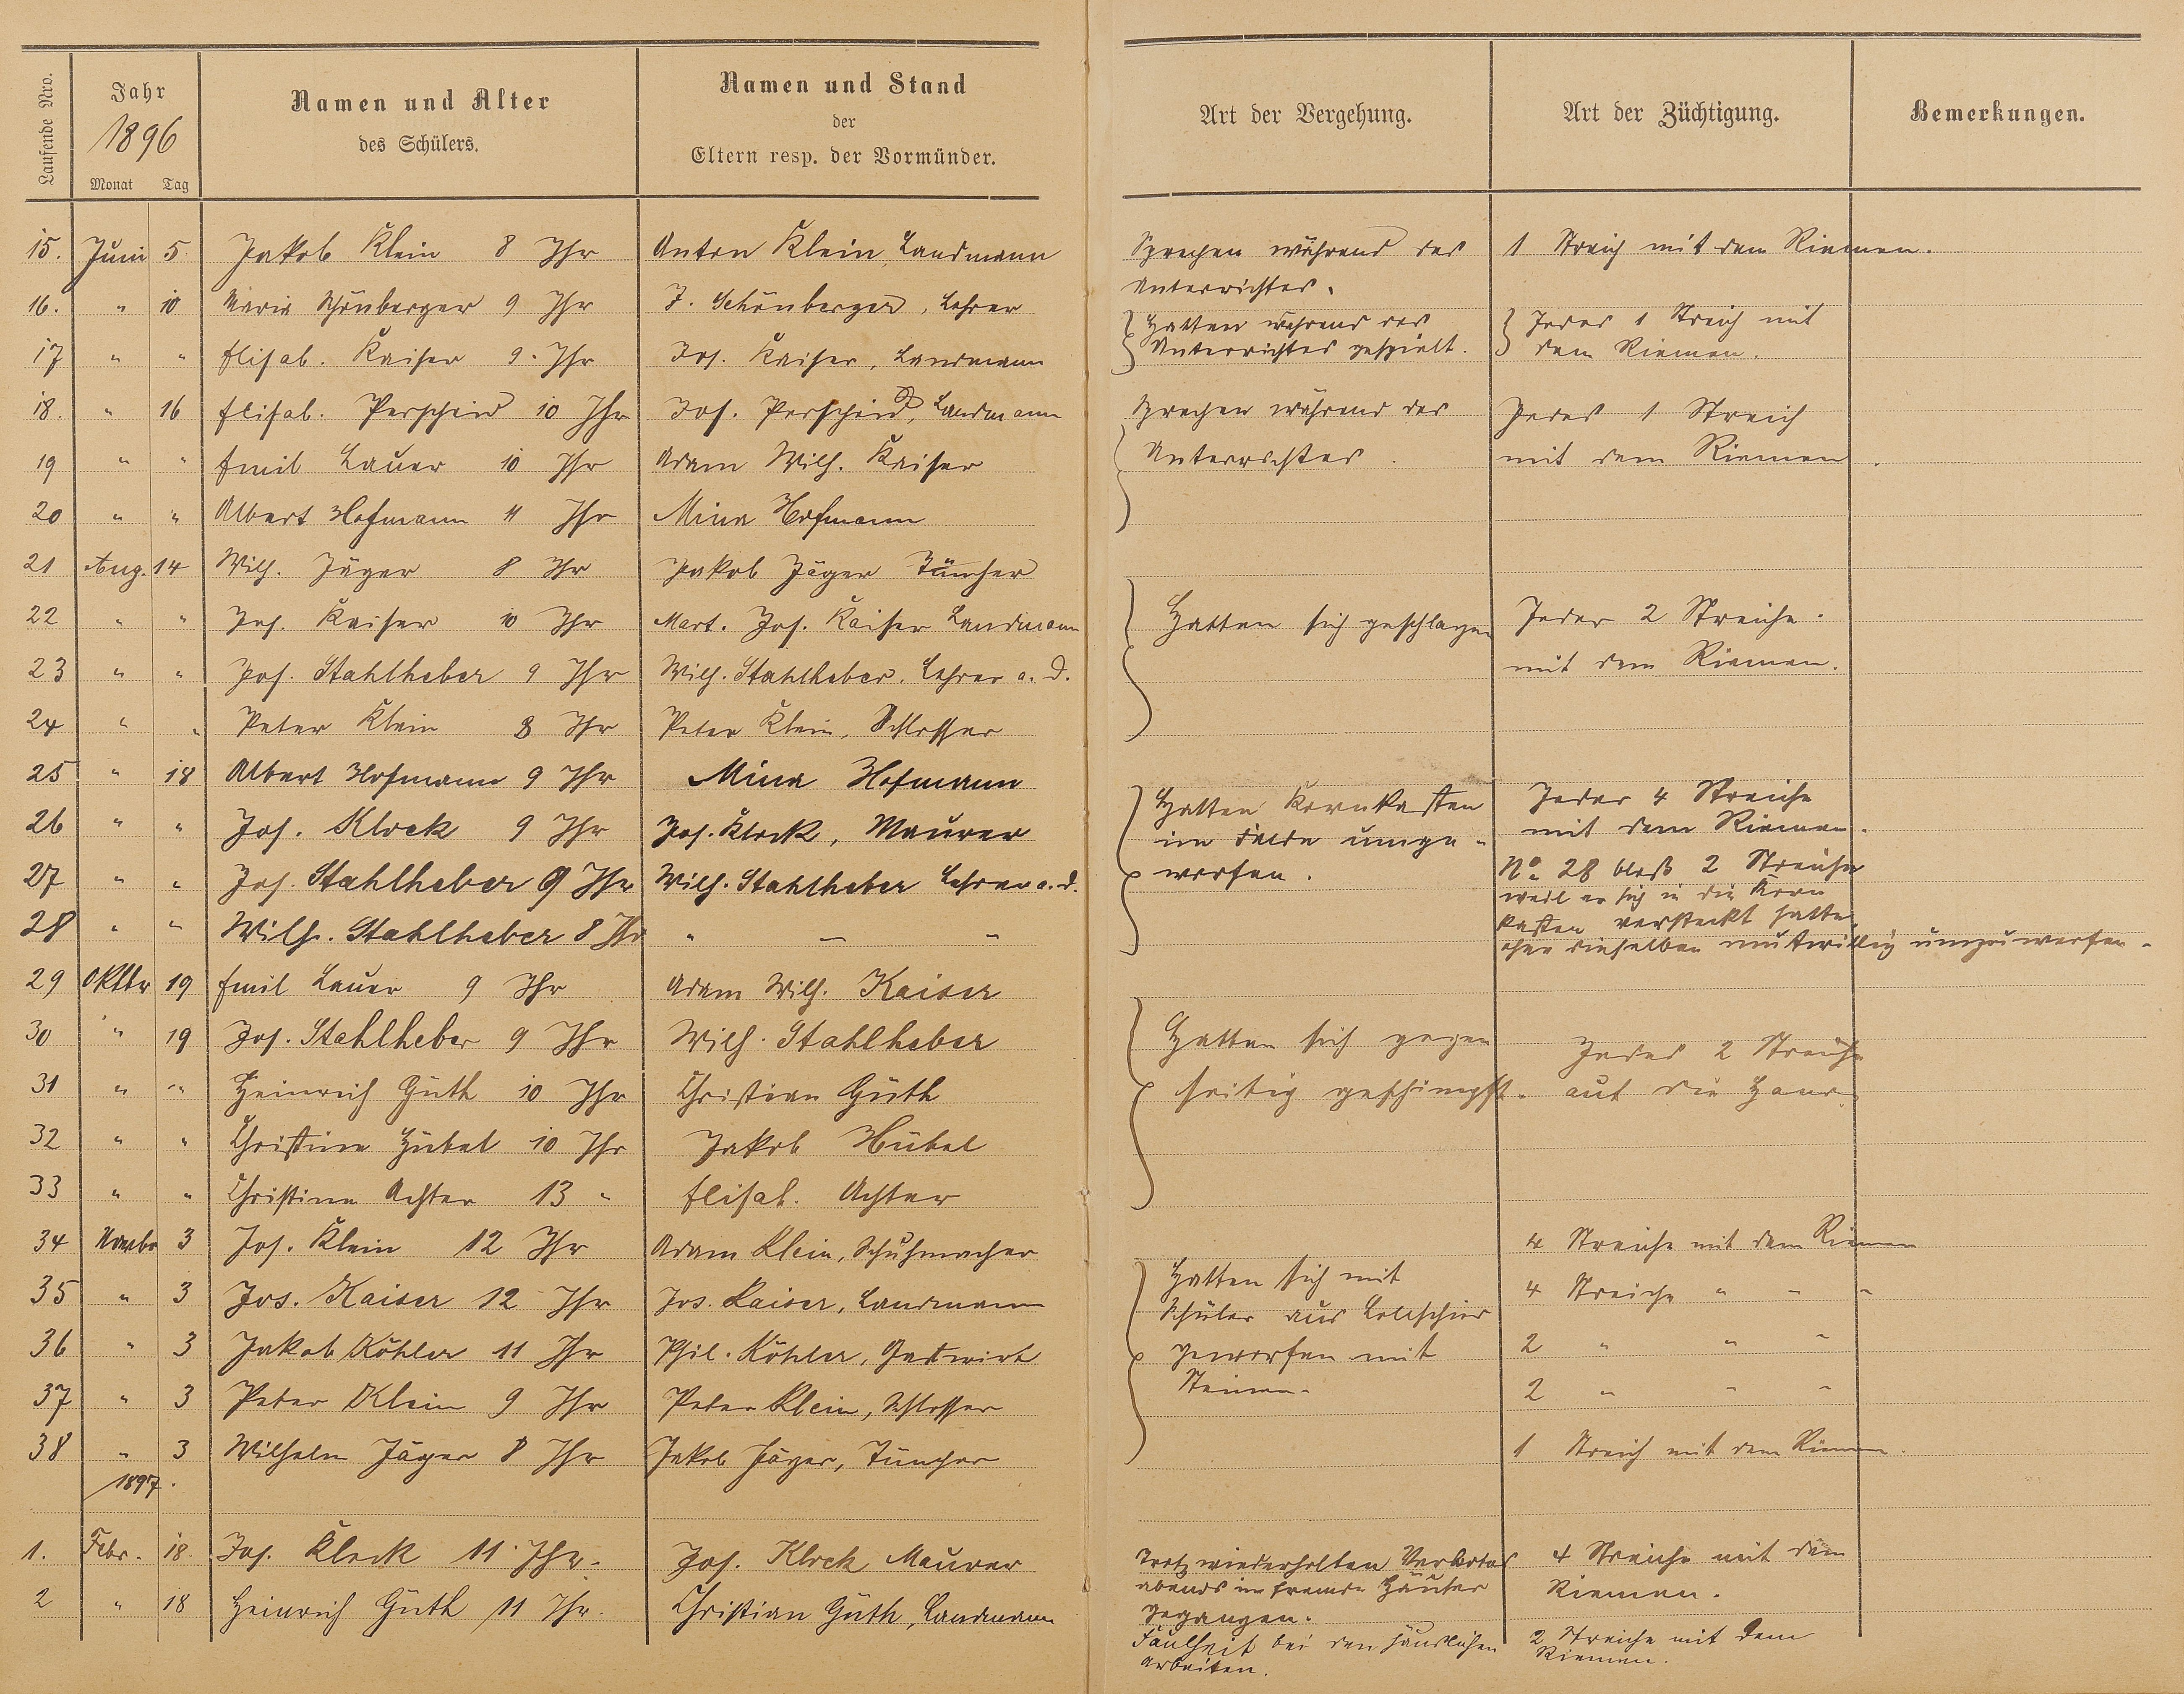 Laufende Nro.
Jahr
1896
Monat Tag
Namen und Alter
des Schülers.
Namen und Stand
der
Eltern resp. der Vormünder.
Art der Vergehung.
Art der Züchtigung.
Bemerkungen.
15. Juni 5. Jakob Klein 8 Jhr Anton Klein, Landmann
16. " 10 Maria Schönberger 9 Jhr J. Schönberger, Lehrer
17 " " Elisab. Kaiser 9. Jhr Jos. Kaiser, Landmann
18. " 16 Elisab. Perscheid 10 Jhr Jos. Perscheid, Landmann
19 " " Emil Lauer 10 Jhr Adam Wilh. Kaiser
20 " " Albert Hofmann 11 Jhr Mina Hofmann
21 Aug. 14 Wilh. Jäger 8 Jhr Jakob Jäger Tüncher
22 " " Jos. Kaiser 10 Jhr Mart. Jos. Kaiser Landmann
23 " " Jos. Stahlheber 9 Jhr Wilh. Stahlheber. Lehrer a. d.
24 " " Peter Klein 8 Jhr Peter Klein, Schlosser
25 " 18 Albert Hofmann 9 Jhr Mina Hofmann
26 " " Jos. Klock 9 Jhr Jos. Klock, Maurer
27 " " Jos. Stahlheber 9 Jhr Wilh. Stahlheber Lehrer a. d.
28 " " Wilh. Stahlheber 8 Jhr " " "
29 Oktbr 19 Emil Lauer 9 Jhr Adam Wilh. Kaiser
30 " 19 Jos. Stahlheber 9 Jhr Wilh. Stahlheber
31 " " Heinrich Güth 10 Jhr Christian Güth
32 " " Christine Hübel 10 Jhr Jakob Hübel
33 " " Christina Achter 13 " Elisab. Achter
34 Novbr 3 Jos. Klein 12 Jhr Adam Klein, Schuhmacher
35 " 3 Jos. Kaiser 12 Jhr Jos. Kaiser, Landmann
36 " 3 Jakob Köhler 11 Jhr Phil. Köhler, Gastwirt
37 " 3 Peter Klein 9 Jhr Peter Klein, Schlosser
38 " 3 Wilhelm Jäger 8 Jhr Jakob Jäger, Tüncher
1897.
1. Febr. 18. Jos. Klock 11 Jhr. Jos. Klock Maurer
2 " 18 Heinrich Güth 11 Jhr. Christian Güth, Landmann
Sprechen während des
Unterrichtes.
1 Streich mit dem Riemen.
Hatten während des
Unterrichtes gespielt.
Jedes 1 Streich mit
dem Riemen.
Sprechen während des
Unterrichtes.
Jedes 1 Streich
mit dem Riemen.
Hatten sich geschlagen
Jeder 2 Streiche.
mit dem Riemen.
Hatten Kornkasten
im Felde umge-
worfen.
Jeder 4 Streiche
mit dem Riemen.
No. 28 bloß 2 Streiche
weil er sich in die Korn
kasten versteckt hatte,
ohne dieselben mutwillig umzuwerfen.
Hatten sich gegen
seitig geschimpft.
Jedes 2 Streiche
auf die Hand.
Hatten sich mit
Schüler aus
geworfen mit
Steinen.
4 Streiche mit dem Riemen
4 Streiche " " "
2 " " "
2 " " "
1 Streich mit dem Riemen.
Trotz wiederholten Verbotes
abends in fremde Häuser
gegangen.
4 Streiche mit dem
Riemen.
Faulheit bei den häuslichen
Arbeiten.
2 Streiche mit dem
Riemen.